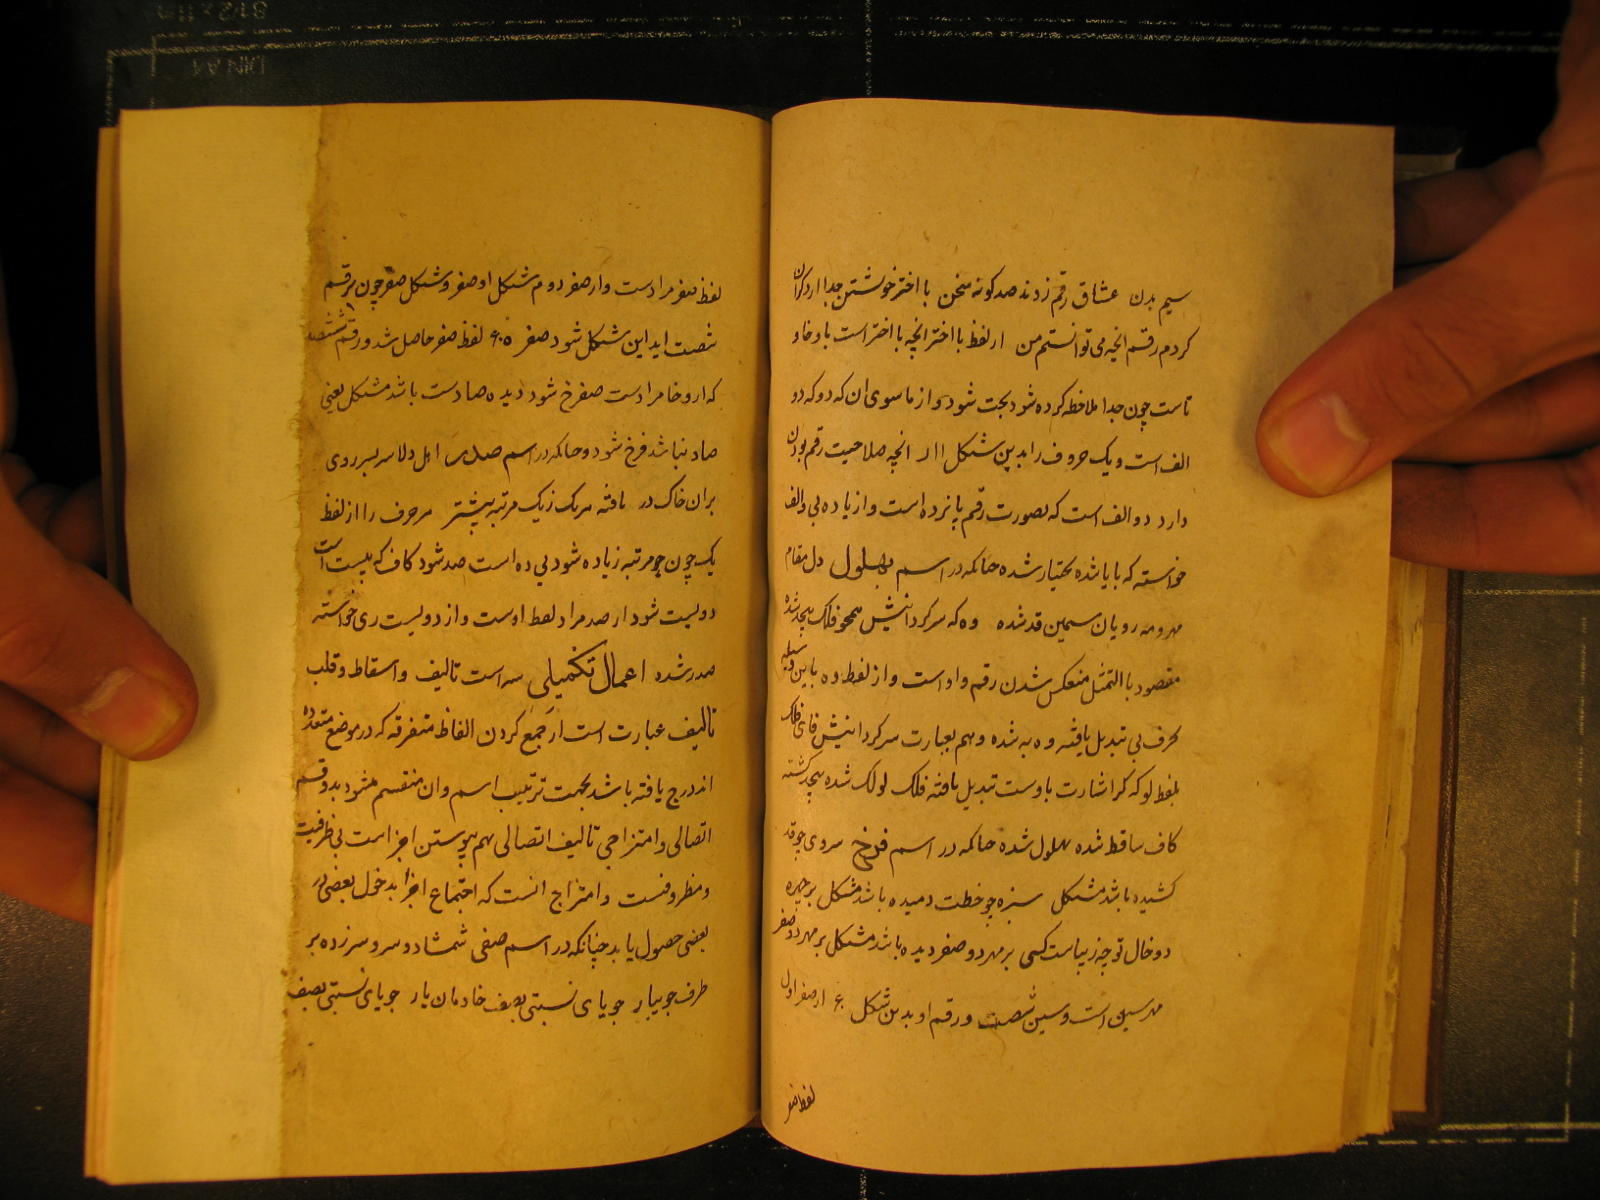 سیم بدن عشاق رقم زدند صد کونه سخن با اختر خویشتن جدا
کردم رقم انچه می توانستم من از لفظ با اختر انچه با اختر است با و خا و
تاست چون جدا ملاحظه کرده شود بجت شود و از ماسوی ان که دو که دو
الف است و یک حرف را بدین شکل اار انچه صلاحیت رقم بودن
دارد دو الف است که بصورت رقم یا نرده است و از یا ده بی والف
خواسته که با یا شده بختیار شده حانکه در اسم بهلول دل مقام
مهر و مه رویان سیمین قد شده وه که سرکردانیش همچو فلک بیحد شده
مقصود با التمثل منعکس شدن رقم واو است و از لفظ وه باین وسیله
حرف بی تبدیل یافته وه به شده و هم بعبارت سرکردانیش فای فلک
بلفظ لو که کرا شارت باوست تبدیل یافته فلک لولک شده بیحد کشته
کاف ساقط شده بهلول شده حانکه در اسم فرخ سروی چو قد
کشیده باشد مشکل سبزه چو خطت دمیده باشد مشکل بر چهره
دو خال تو چه زیباست کسی بر مهر دو صفر دیده باشد مشکل بر مهر دو صفر
مهر سین است و سین شصت و رقم او بدین شکل ۶۰ از صفر اول
لفظ صفر
لفظ صفر مرادست و از صفر دوم شکل او صفر و شکل صفر چون بر رقم
شصت اید این شکل شود صفر ۶۰۰ لفظ صفر حاصل شد و رقم ششصد
که از و خا مرادست صفر خ شود دیده صادست باشد مشکل یعنی
صاد نباشد فرخ شود و حانکه در اسم صدر اهل دلا سر بسر روی
بران خاک در یافته هر یک زیک مرتبه بیشتر هر حرف را از لفظ
یک چون چو مرتبه زیاده شود یی ده است صد شود کاف که بیست است
دویست شود از صد مراد لفظ اوست و از دویست ری خواسته
صدر شده اعمال تکمیلی سه است تالیف و اسقاط و قلب
تالیف عبارت است از جمع کردن الفاظ متفرقه که در موضع متعدده
اندرج یافته باشد بجهت ترتیب اسم و ان منقسم میشود بدو قسم
اتصالی و امتزاجی تالیف اتصالی بهم پیوستن اجزاست بی ظرفیت
و مظروفیت و امتزاج انست که اجتماع اجزا بدخول بعضی در
بعضی حصول یابد چنانکه در اسم صفی شمشاد و سرو سر زده بر
طرف جویبار جویای نسبتی بصف خادمان یار جویای نسبتی بصف